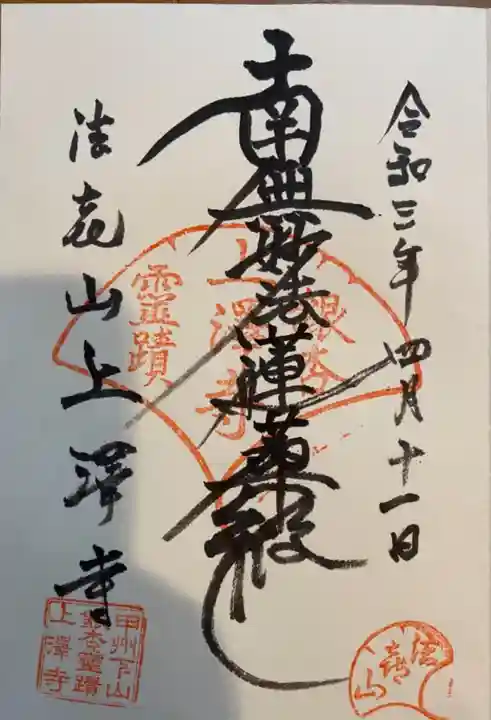 令和三年四月十一日
南無妙法蓮華経
法喜山上澤寺
銀杏
上澤寺
霊蹟
法喜山
甲州下山
銀杏霊蹟
上澤寺